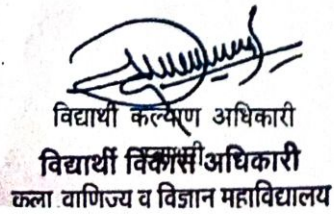 विद्यार्थी कल्याण अधिकारी
विद्यार्थी विकास अधिकारी
कला वाणिज्य व विज्ञान महाविद्यालय